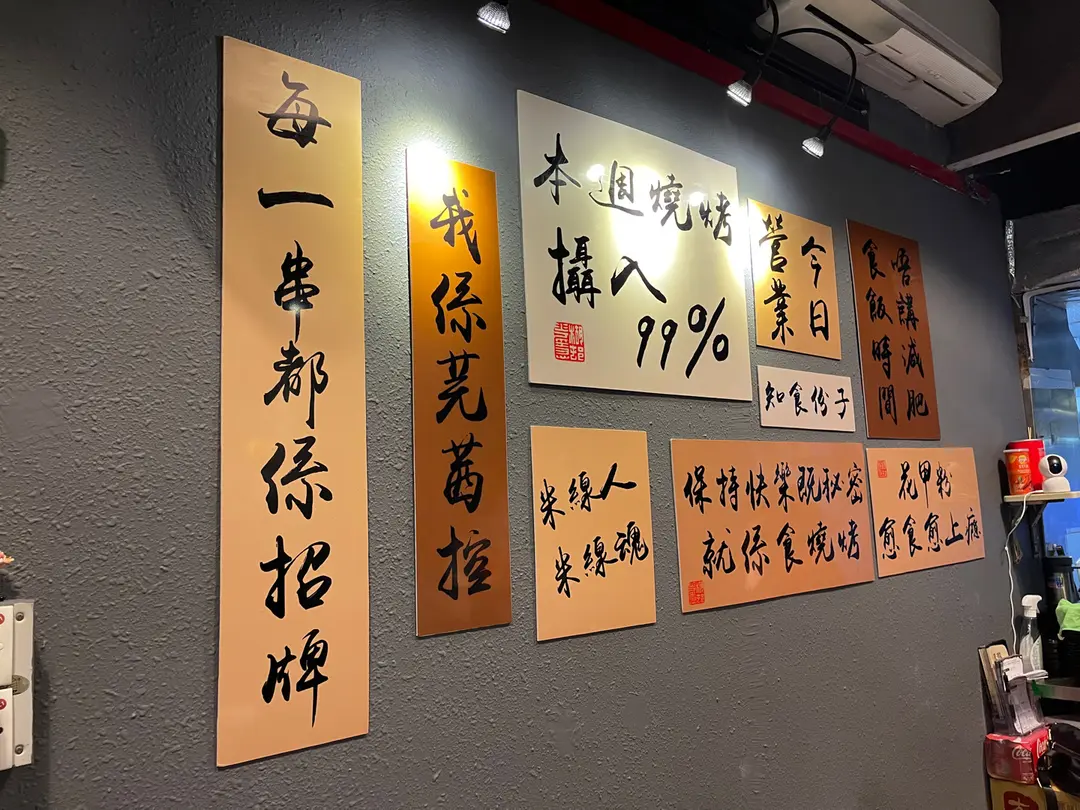 每一串都係招牌
我係芫茜控
本週燒烤
攝入
99%
今日
營業
唔講減肥
食飯時間
知食份子
米線人
米線魂
保持快樂既秘密
就係食燒烤
花甲粉
愈食愈上癮